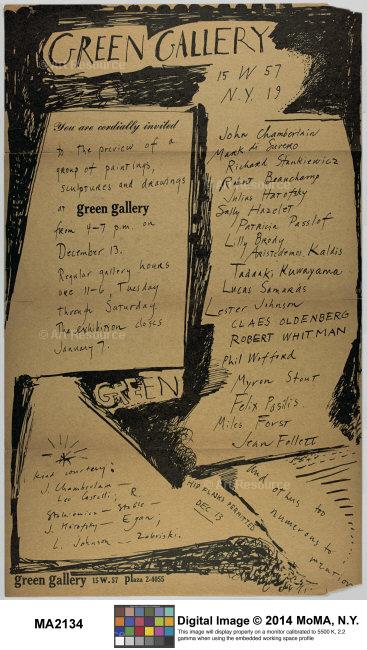 GREEN GALLERY
15 W 57
N.Y. 19
You are cordially invited
to the preview of a
group of paintings,
sculptures and drawings
at green gallery
from 4-7 p.m. on
December 13.
Regular gallery hours
are 11-6, Tuesday
through Saturday.
The exhibition closes
January 7.
John Chamberlain
Mark di Suvero
Richard Stankiewicz
Robert Beauchamp
Julius Hatofsky
Sally Hazelet
Patricia Passlof
Lilly Brody
Aristedemos Kaldis
Tadaaki Kuwayama
Lucas Samaras
Lester Johnson
CLAES OLDENBERG
ROBERT WHITMAN
Phil Wofford
Myron Stout
Felix Pasilis
Miles Forst
Jean Follett
and others too
numerous to
mention
GREEN
Kind courtesy:
J. Chamberlain -
Leo Castelli; R.
Stankiewicz - Stable -
J. Hatofsky - Egan,
L. Johnson - Zabriski.
HIP FLASKS PERMITTED
DEC 13
green gallery 15 W. 57 Plaza 2-4055
© Art Resource
MA2134
Digital Image © 2014 MoMA, N.Y.
This image will display properly on a monitor calibrated to 5500 K, 2.2
gamma when using the embedded working space profile